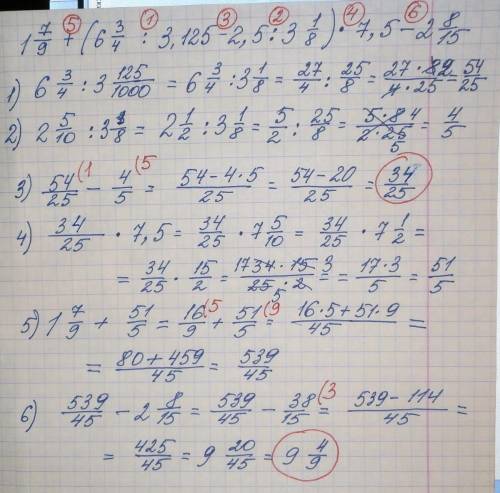 ⑤ ① ③ ② ④ ⑥
1 7/9 + (6 3/4 : 3,125 - 2,5 : 3 1/8) · 7,5 - 2 8/15
1) 6 3/4 : 3 125/1000 = 6 3/4 : 3 1/8 = 27/4 : 25/8 = 27 · 8 2/4 · 25 = 54/25
2) 2 5/10 : 3 1/8 = 2 1/2 : 3 1/8 = 5/2 : 25/8 = 5 · 8 4/2 · 25 5 = 4/5
3) 54/25 (1 - 4/5 (5 = 54 - 4 · 5/25 = 54 - 20/25 = 34/25
4) 34/25 · 7,5 = 34/25 · 7 5/10 = 34/25 · 7 1/2 =
= 34/25 · 15/2 = 17 34 · 15 3/25 5 · 2 = 17 · 3/5 = 51/5
5) 1 7/9 + 51/5 = 16/9 (5 + 51/5 (9 = 16 · 5 + 51 · 9/45 =
= 80 + 459/45 = 539/45
6) 539/45 - 2 8/15 = 539/45 - 38/15 (3 = 539 - 114/45 =
= 425/45 = 9 20/45 = 9 4/9